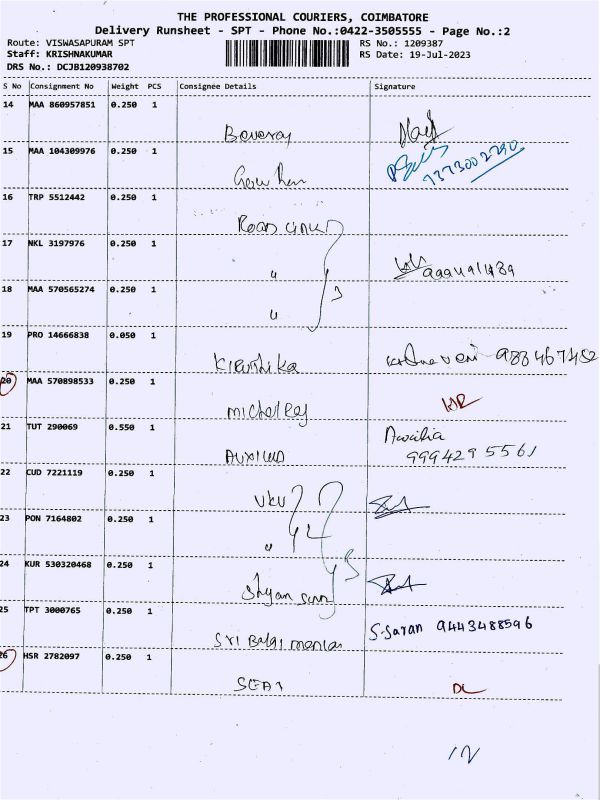 THE PROFESSIONAL COURIERS, COIMBATORE
Delivery Runsheet - SPT - Phone No.:0422-3505555 - Page No.:2
Route: VISWASAPURAM SPT RS No.: 1209387
Staff: KRISHNAKUMAR RS Date: 19-Jul-2023
DRS No.: DCJB120938702
S No Consignment No Weight PCS Consignee Details Signature
14 MAA 860957851 0.250 1
15 MAA 104309976 0.250 1
7373002790
16 TRP 5512442 0.250 1
17 NKL 3197976 0.250 1
"
18 MAA 570565274 0.250 1
" 3
19 PRO 14666838 0.050 1
Kiruthika
20 MAA 570898533 0.250 1
21 TUT 290069 0.550 1
9994295561
22 CUD 7221119 0.250 1
VKV
23 PON 7164802 0.250 1
"
24 KUR 530320468 0.250 1
25 TPT 3000765 0.250 1
Sri Balaji S.Saran 9443488596
26 HSR 2782097 0.250 1
DL